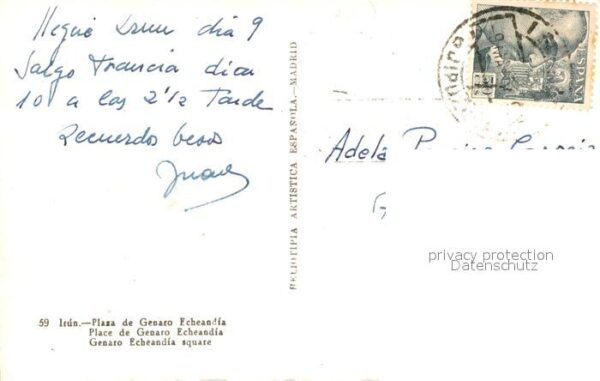 Llegué Irun dia 9
Salgo Francia dia
10 a las 2 1/2 Tarde
Recuerdos besos
Juan
HELIOTIPIA ARTISTICA ESPAÑOLA.—MADRID
ESPAÑA
Adela
privacy protection
Datenschutz
59 Irún.—Plaza de Genaro Echeandía
Place de Genaro Echeandía
Genaro Echeandía square